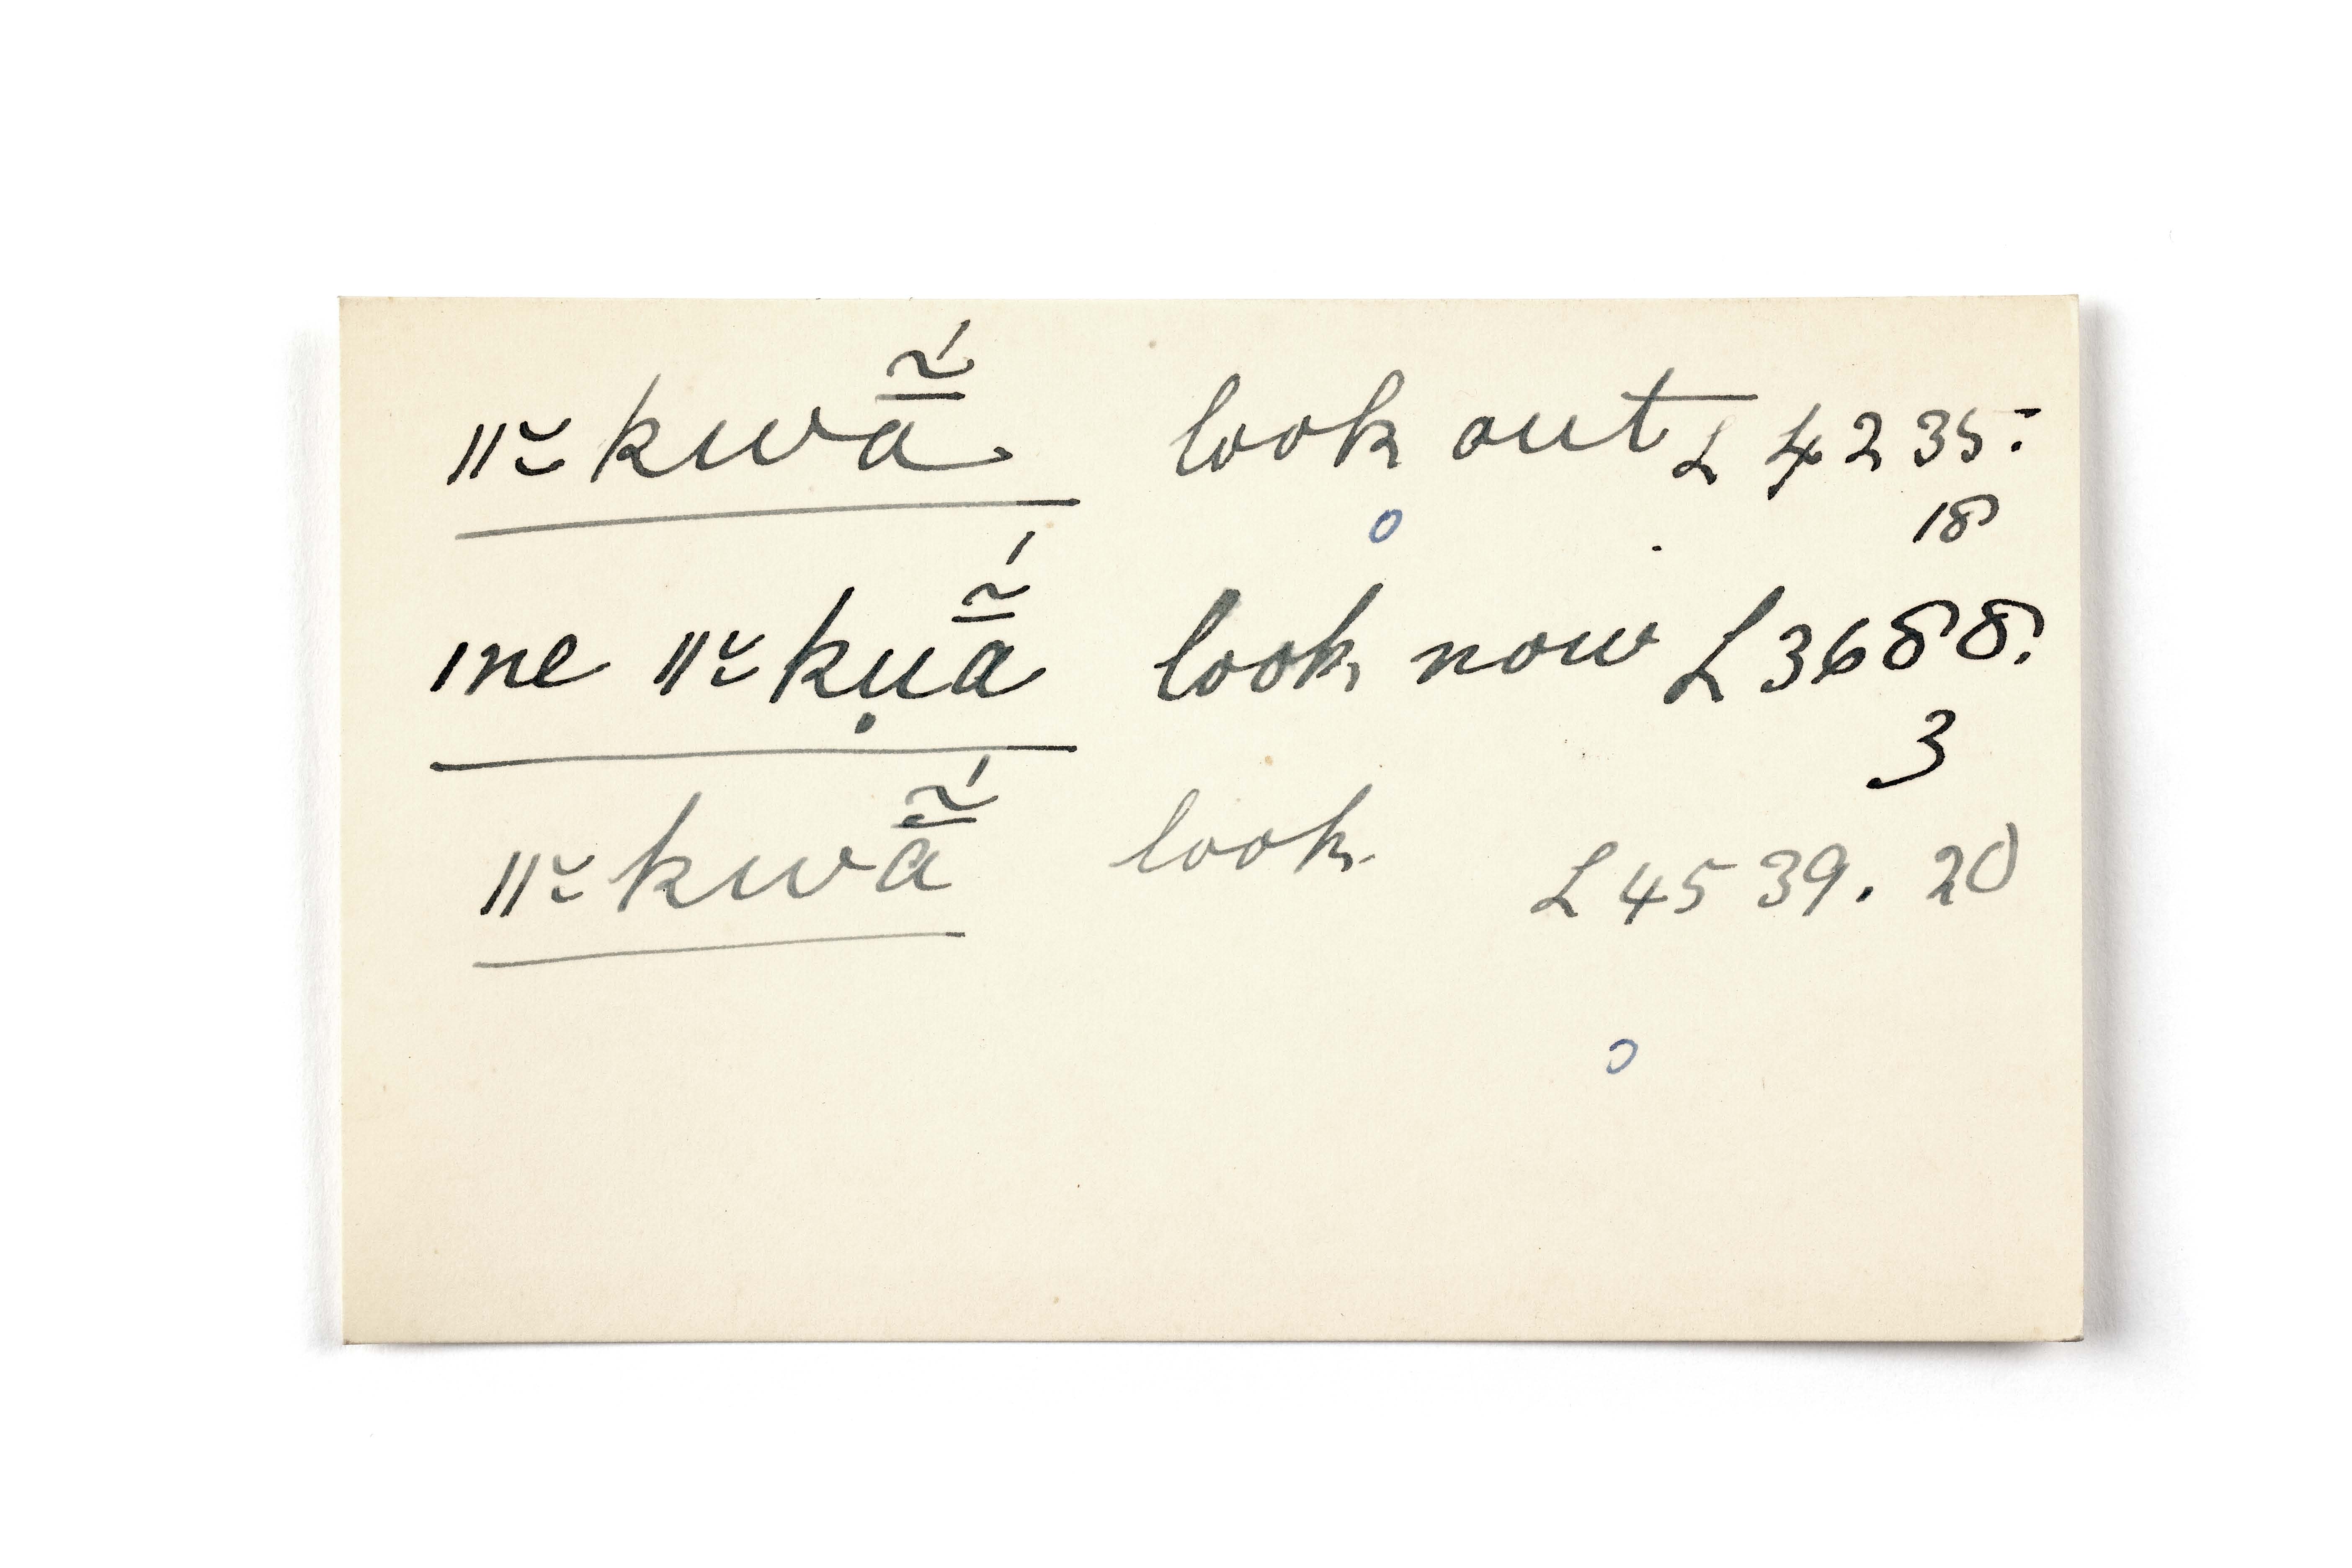 ǁ˘͜kwā̰̃́ look out L 4235.
18
ıne ǁ˘͜kụā̃́ look now L 3688.
3
ǁ˘͜kwā̃́ look. L 4539. 20